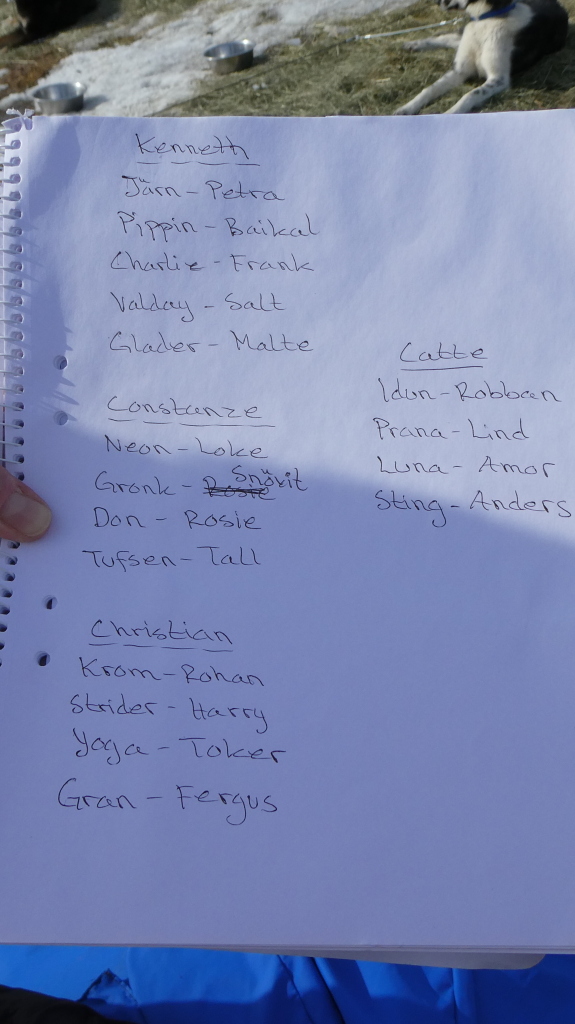 Kenneth
Järn - Petra
Pippin - Baikal
Charlie - Frank
Valday - Salt
Glader - Malte
Constanze
Neon - Loke
Gronk - Rosie Snövit
Don - Rosie
Tufsen - Tall
Christian
Krom - Rohan
Strider - Harry
Yoga - Toker
Gran - Fergus
Catte
Idun - Robban
Prana - Lind
Luna - Amor
Sting - Anders